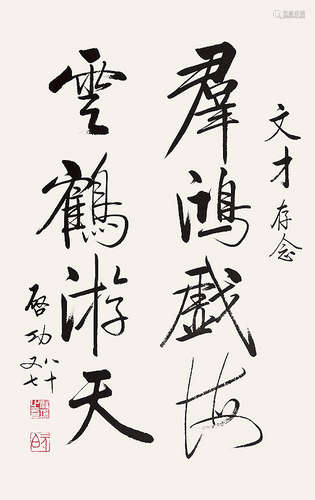 文才存念
羣鴻戲海
雲鶴游天
啓功
八十又七